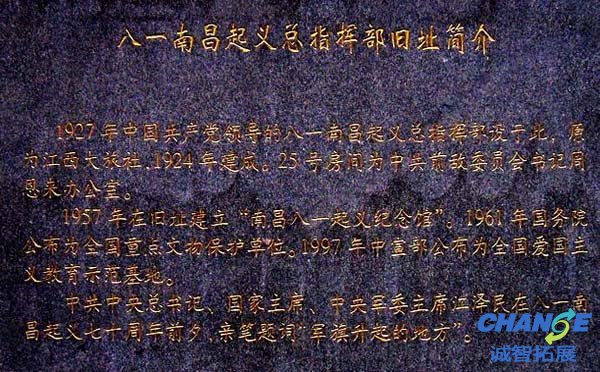 八一南昌起义总指挥部旧址简介
1927年中国共产党领导的八一南昌起义总指挥部设于此，原
为江西大旅社，1924年建成。25号房间为中共前敌委员会书记周
恩来办公室。
1957年在旧址建立“南昌八一起义纪念馆”。1961年国务院
公布为全国重点文物保护单位。1997年中宣部公布为全国爱国主
义教育示范基地。
中共中央总书记、国家主席、中央军委主席江泽民在八一南
昌起义七十周年前夕，亲笔题词“军旗升起的地方”。
CHANGE
诚智拓展